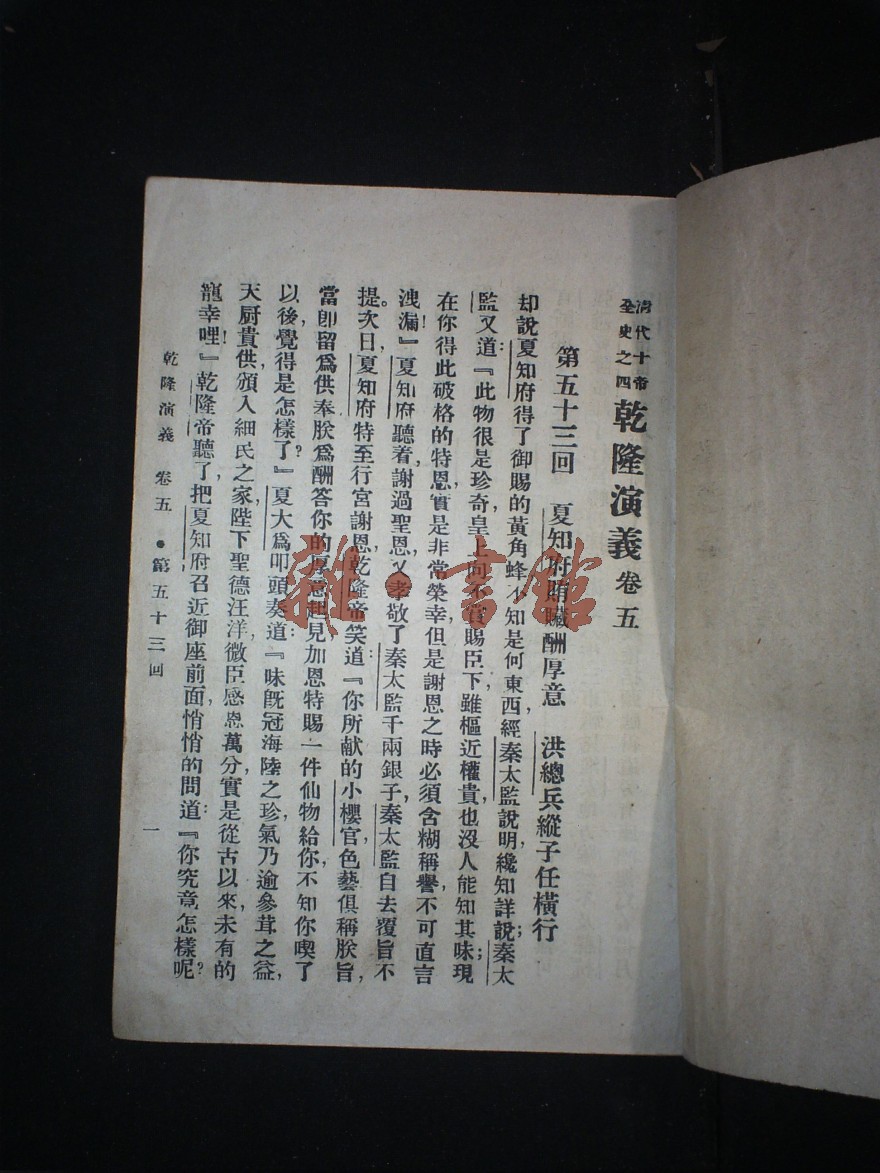 清代十帝
全史之四
乾隆演義 卷五
第五十三回 夏知府賄贓酬厚意 洪總兵縱子任橫行
却說夏知府得了御賜的黃角蜂不知是何東西,經秦太監說明,纔知詳說;秦太
監又道:『此物很是珍奇,皇上向不賞賜臣下,雖樞近權貴,也沒人能知其味;現
在你得此破格的特恩,實是非常榮幸,但是謝恩之時,必須含糊稱譽,不可直言
洩漏!』夏知府聽着,謝過聖恩,又孝敬了秦太監千兩銀子,秦太監自去覆旨不
提。次日,夏知府特至行宮謝恩,乾隆帝笑道:『你所献的小櫻官,色藝俱稱朕旨,
當卽留爲供奉,朕爲酬答你的厚意起見,加恩特賜一件仙物給你,不知你喫了
以後,覺得是怎樣了?』夏大爲叩頭奏道:『味旣冠海陸之珍,氣乃逾參茸之益,
天厨貴供,頒入細民之家,陛下聖德汪洋,微臣感恩萬分,實是從古以來,未有的
寵幸哩!』乾隆帝聽了,把夏知府召近御座前面,悄悄的問道:『你究竟怎樣呢?
乾隆演義 卷五 ●第五十三回 一
雜·書館